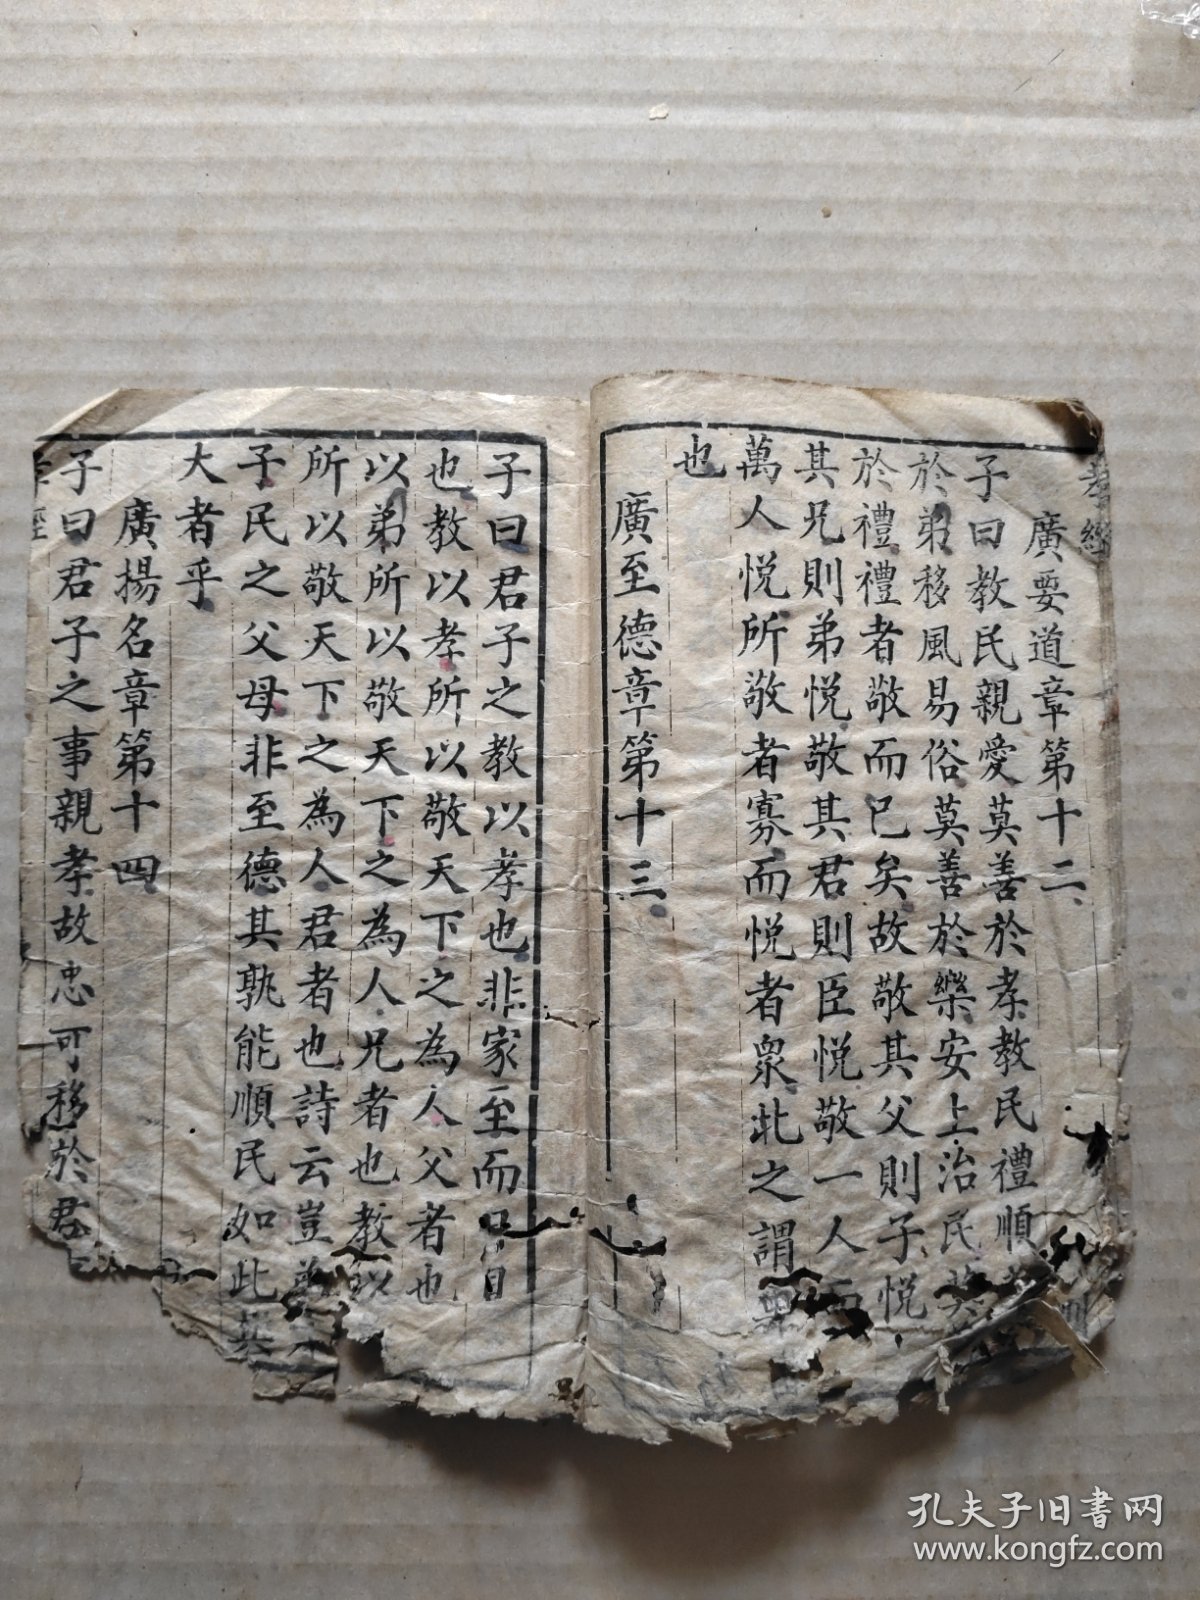 孝經
廣要道章第十二
子曰教民親愛莫善於孝教民禮順
於弟移風易俗莫善於樂安上治民莫
於禮禮者敬而已矣故敬其父則子悅
其兄則弟悅敬其君則臣悅敬一人而
萬人悅所敬者寡而悅者衆此之謂要
也
廣至德章第十三
子曰君子之教以孝也非家至而日
也教以孝所以敬天下之為人父者也
以弟所以敬天下之為人兄者也教以
所以敬天下之為人君者也詩云豈弟
子民之父母非至德其孰能順民如此其
大者乎
廣揚名章第十四
子曰君子之事親孝故忠可移於君
孔夫子旧书网
www.kongfz.com